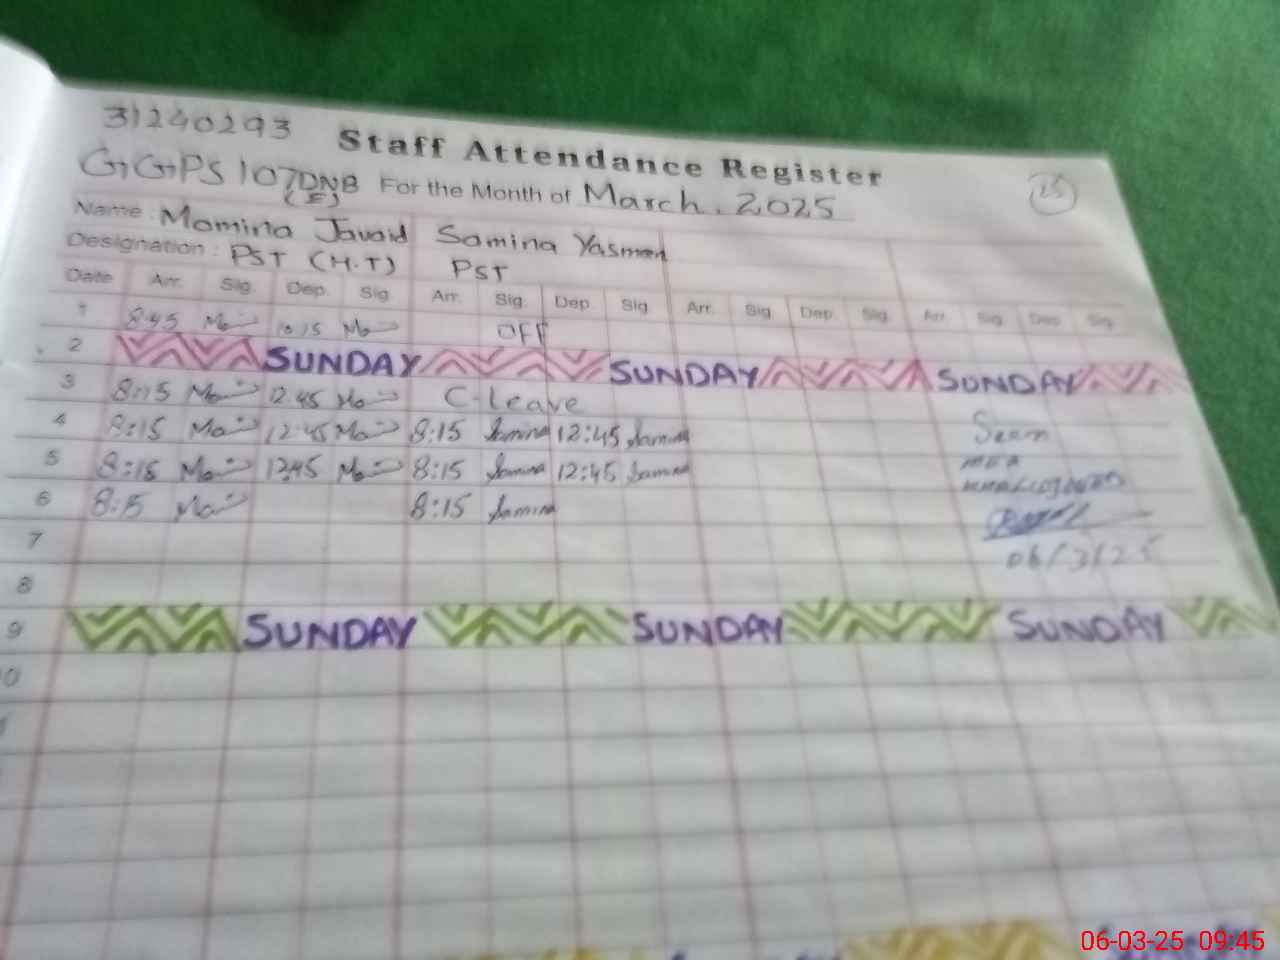 31240293 Staff Attendance Register
GGPS 107 DNB (E) For the Month of March, 2025 25
Name: Momina Javaid Samina Yasmen
Designation: PST (H.T) PST
Date Arr. Sig. Dep. Sig Arr. Sig Dep. Sig Arr. Sig Dep. Sig Arr Sig Dep Sig
1 8:45 10:15 OFF
2 SUNDAY SUNDAY SUNDAY
3 8:15 12:45 C-leave
4 8:15 12:45 8:15 Samina 12:45 Samina
5 8:15 12:45 8:15 Samina 12:45 Samina
6 8:15 8:15 Samina
7
06/3/25
8
9 SUNDAY SUNDAY SUNDAY
10
06-03-25 09:45